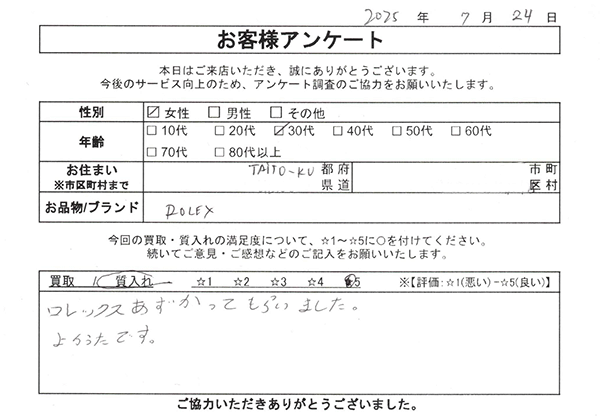 2025 年 7 月 24 日
お客様アンケート
本日はご来店いただき、誠にありがとうございます。
今後のサービス向上のため、アンケート調査のご協力をお願いいたします。
性別 ☑ 女性 □ 男性 □ その他
年齢 □ 10代 □ 20代 ☑ 30代 □ 40代 □ 50代 □ 60代
□ 70代 □ 80代以上
お住まい ※市区町村まで TAITO-KU 都府県道 市町区村
お品物/ブランド ROLEX
今回の買取・質入れの満足度について、☆1~☆5に○を付けてください。
続いてご意見・ご感想などのご記入をお願いいたします。
買取 / 質入れ ☆1 ☆2 ☆3 ☆4 ☆5 ※【評価:☆1(悪い)-☆5(良い)】
ロレックスあずかってもらいました。
よかったです。
ご協力いただきありがとうございました。